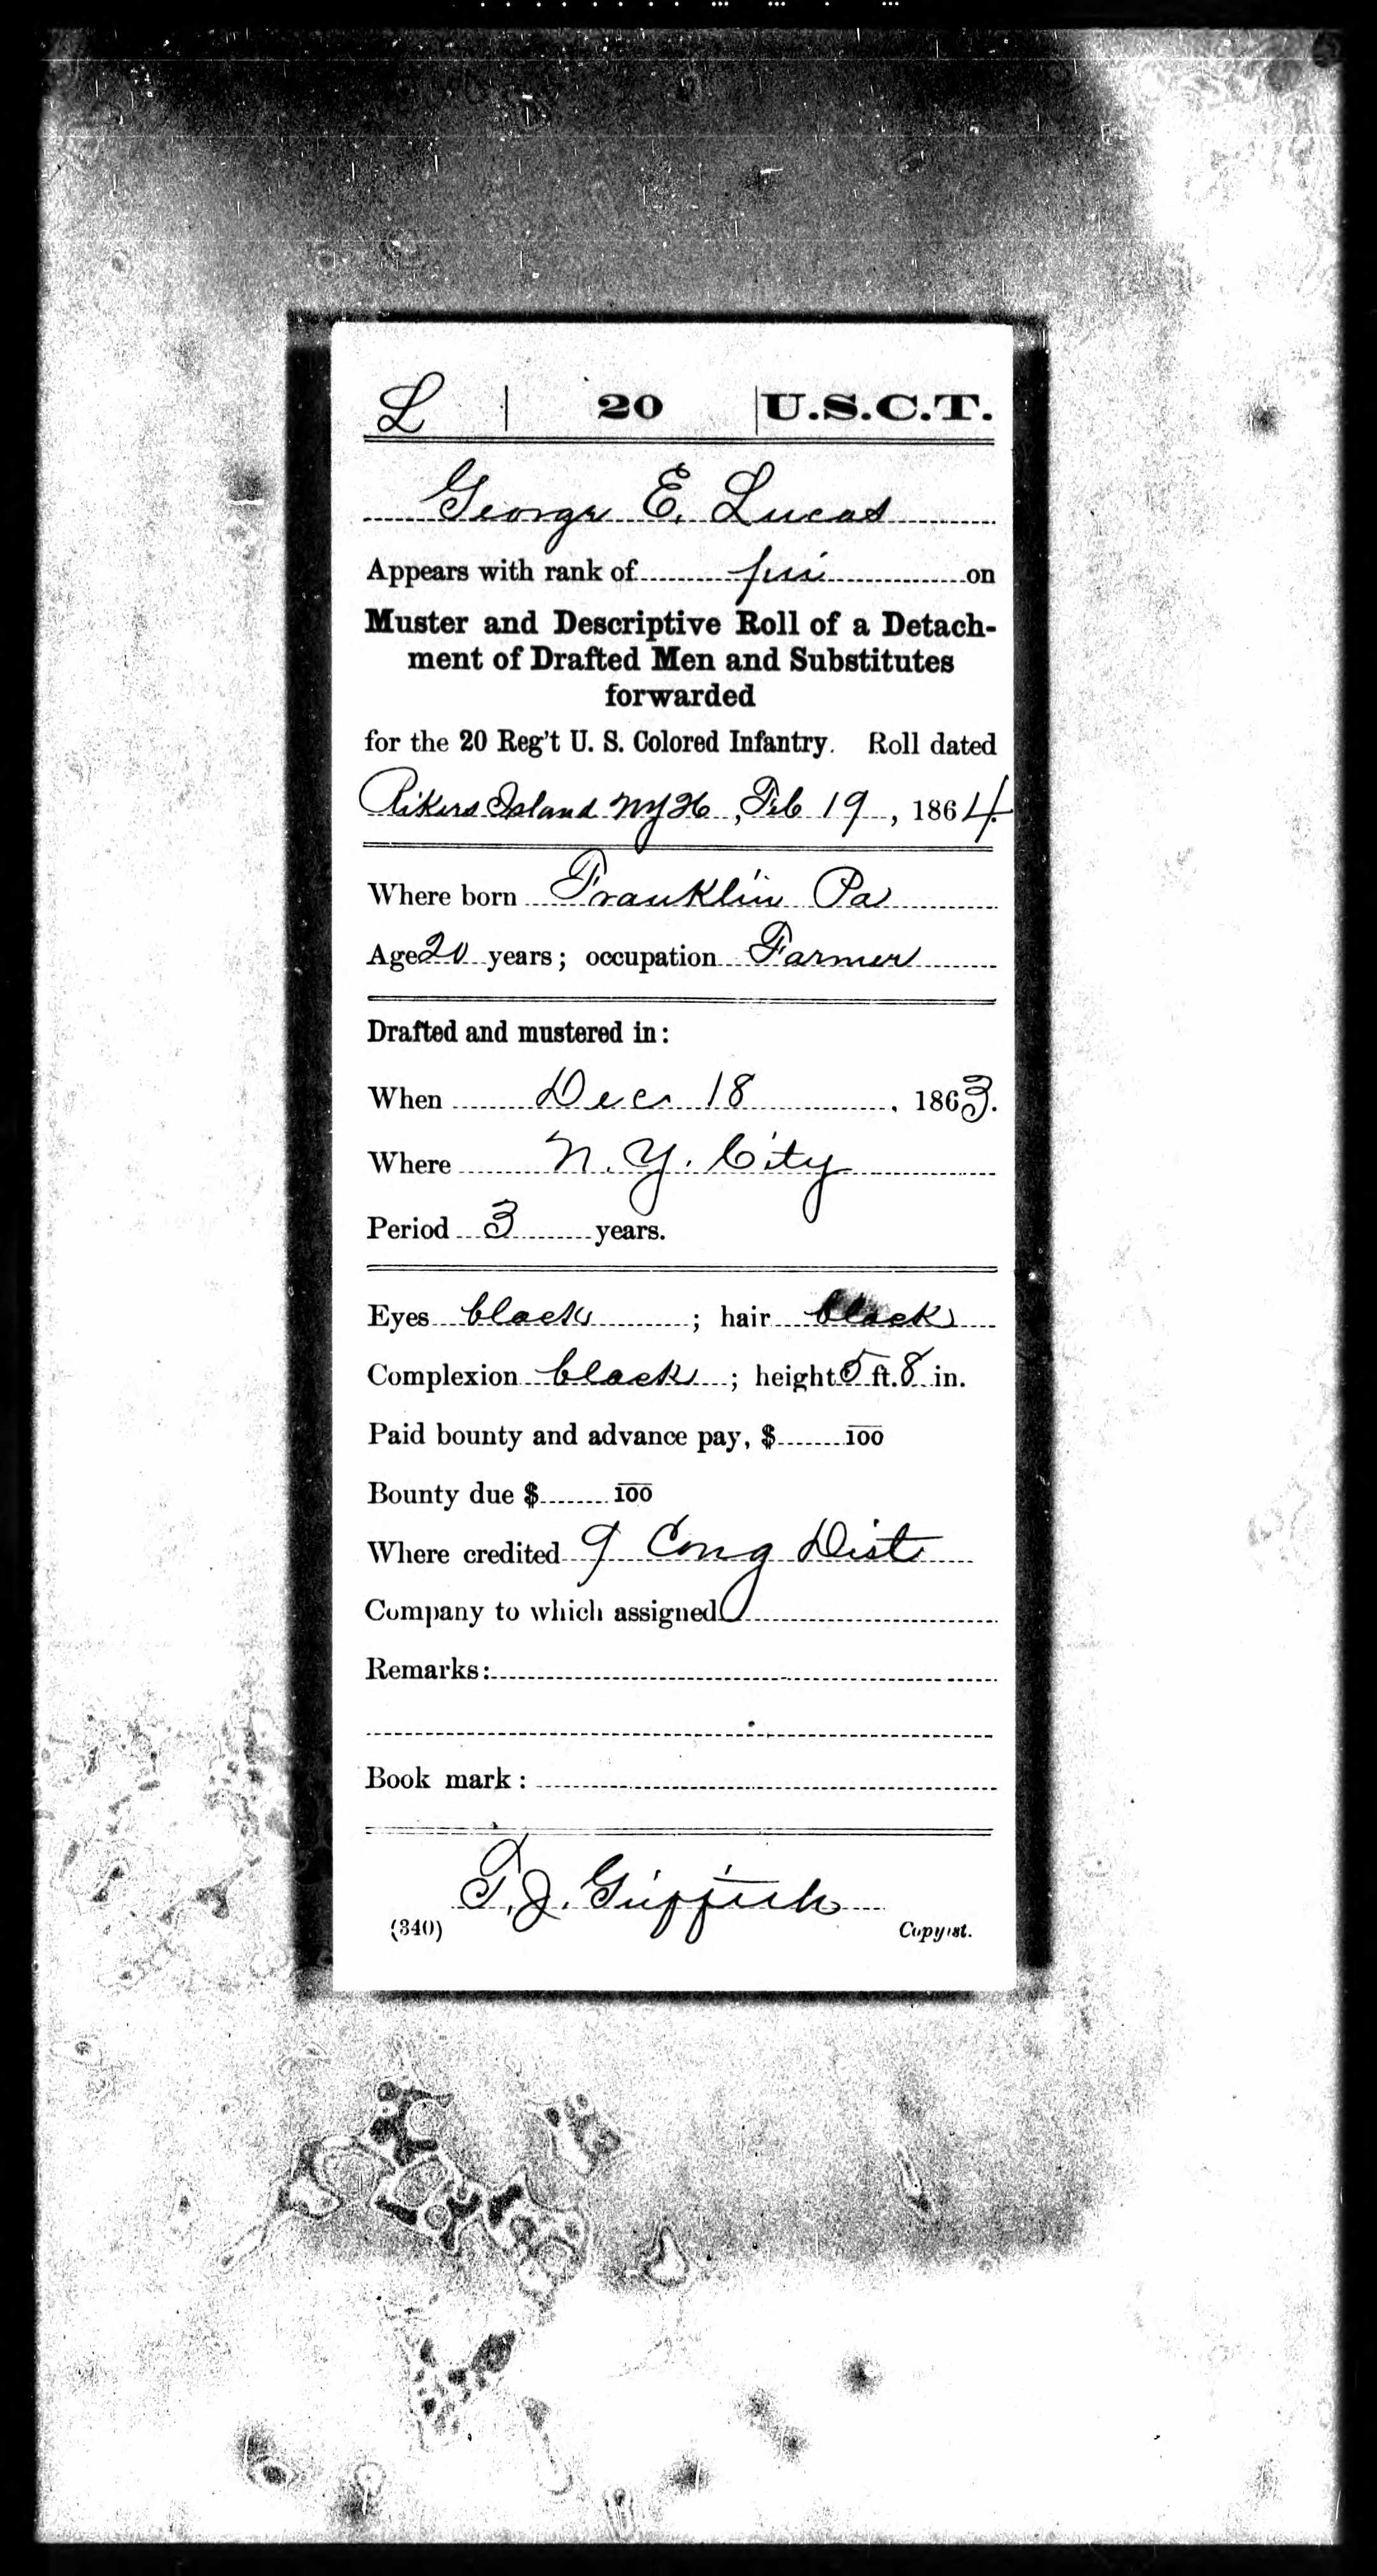 L | 20 | U.S.C.T.
George E. Lucas
Appears with rank of pri on
Muster and Descriptive Roll of a Detach-
ment of Drafted Men and Substitutes
forwarded
for the 20 Reg't U. S. Colored Infantry. Roll dated
Rikers Island NYH, Feb 19, 1864.
Where born Franklin Pa
Age 20 years; occupation Farmer
Drafted and mustered in:
When Dec 18, 1863.
Where N. Y. City
Period 3 years.
Eyes black; hair black
Complexion black; height 5 ft. 8 in.
Paid bounty and advance pay, $ 100
Bounty due $ 100
Where credited 9 Cong Dist
Company to which assigned
Remarks:
Book mark:
T. J. Griffith
(340) Copyist.